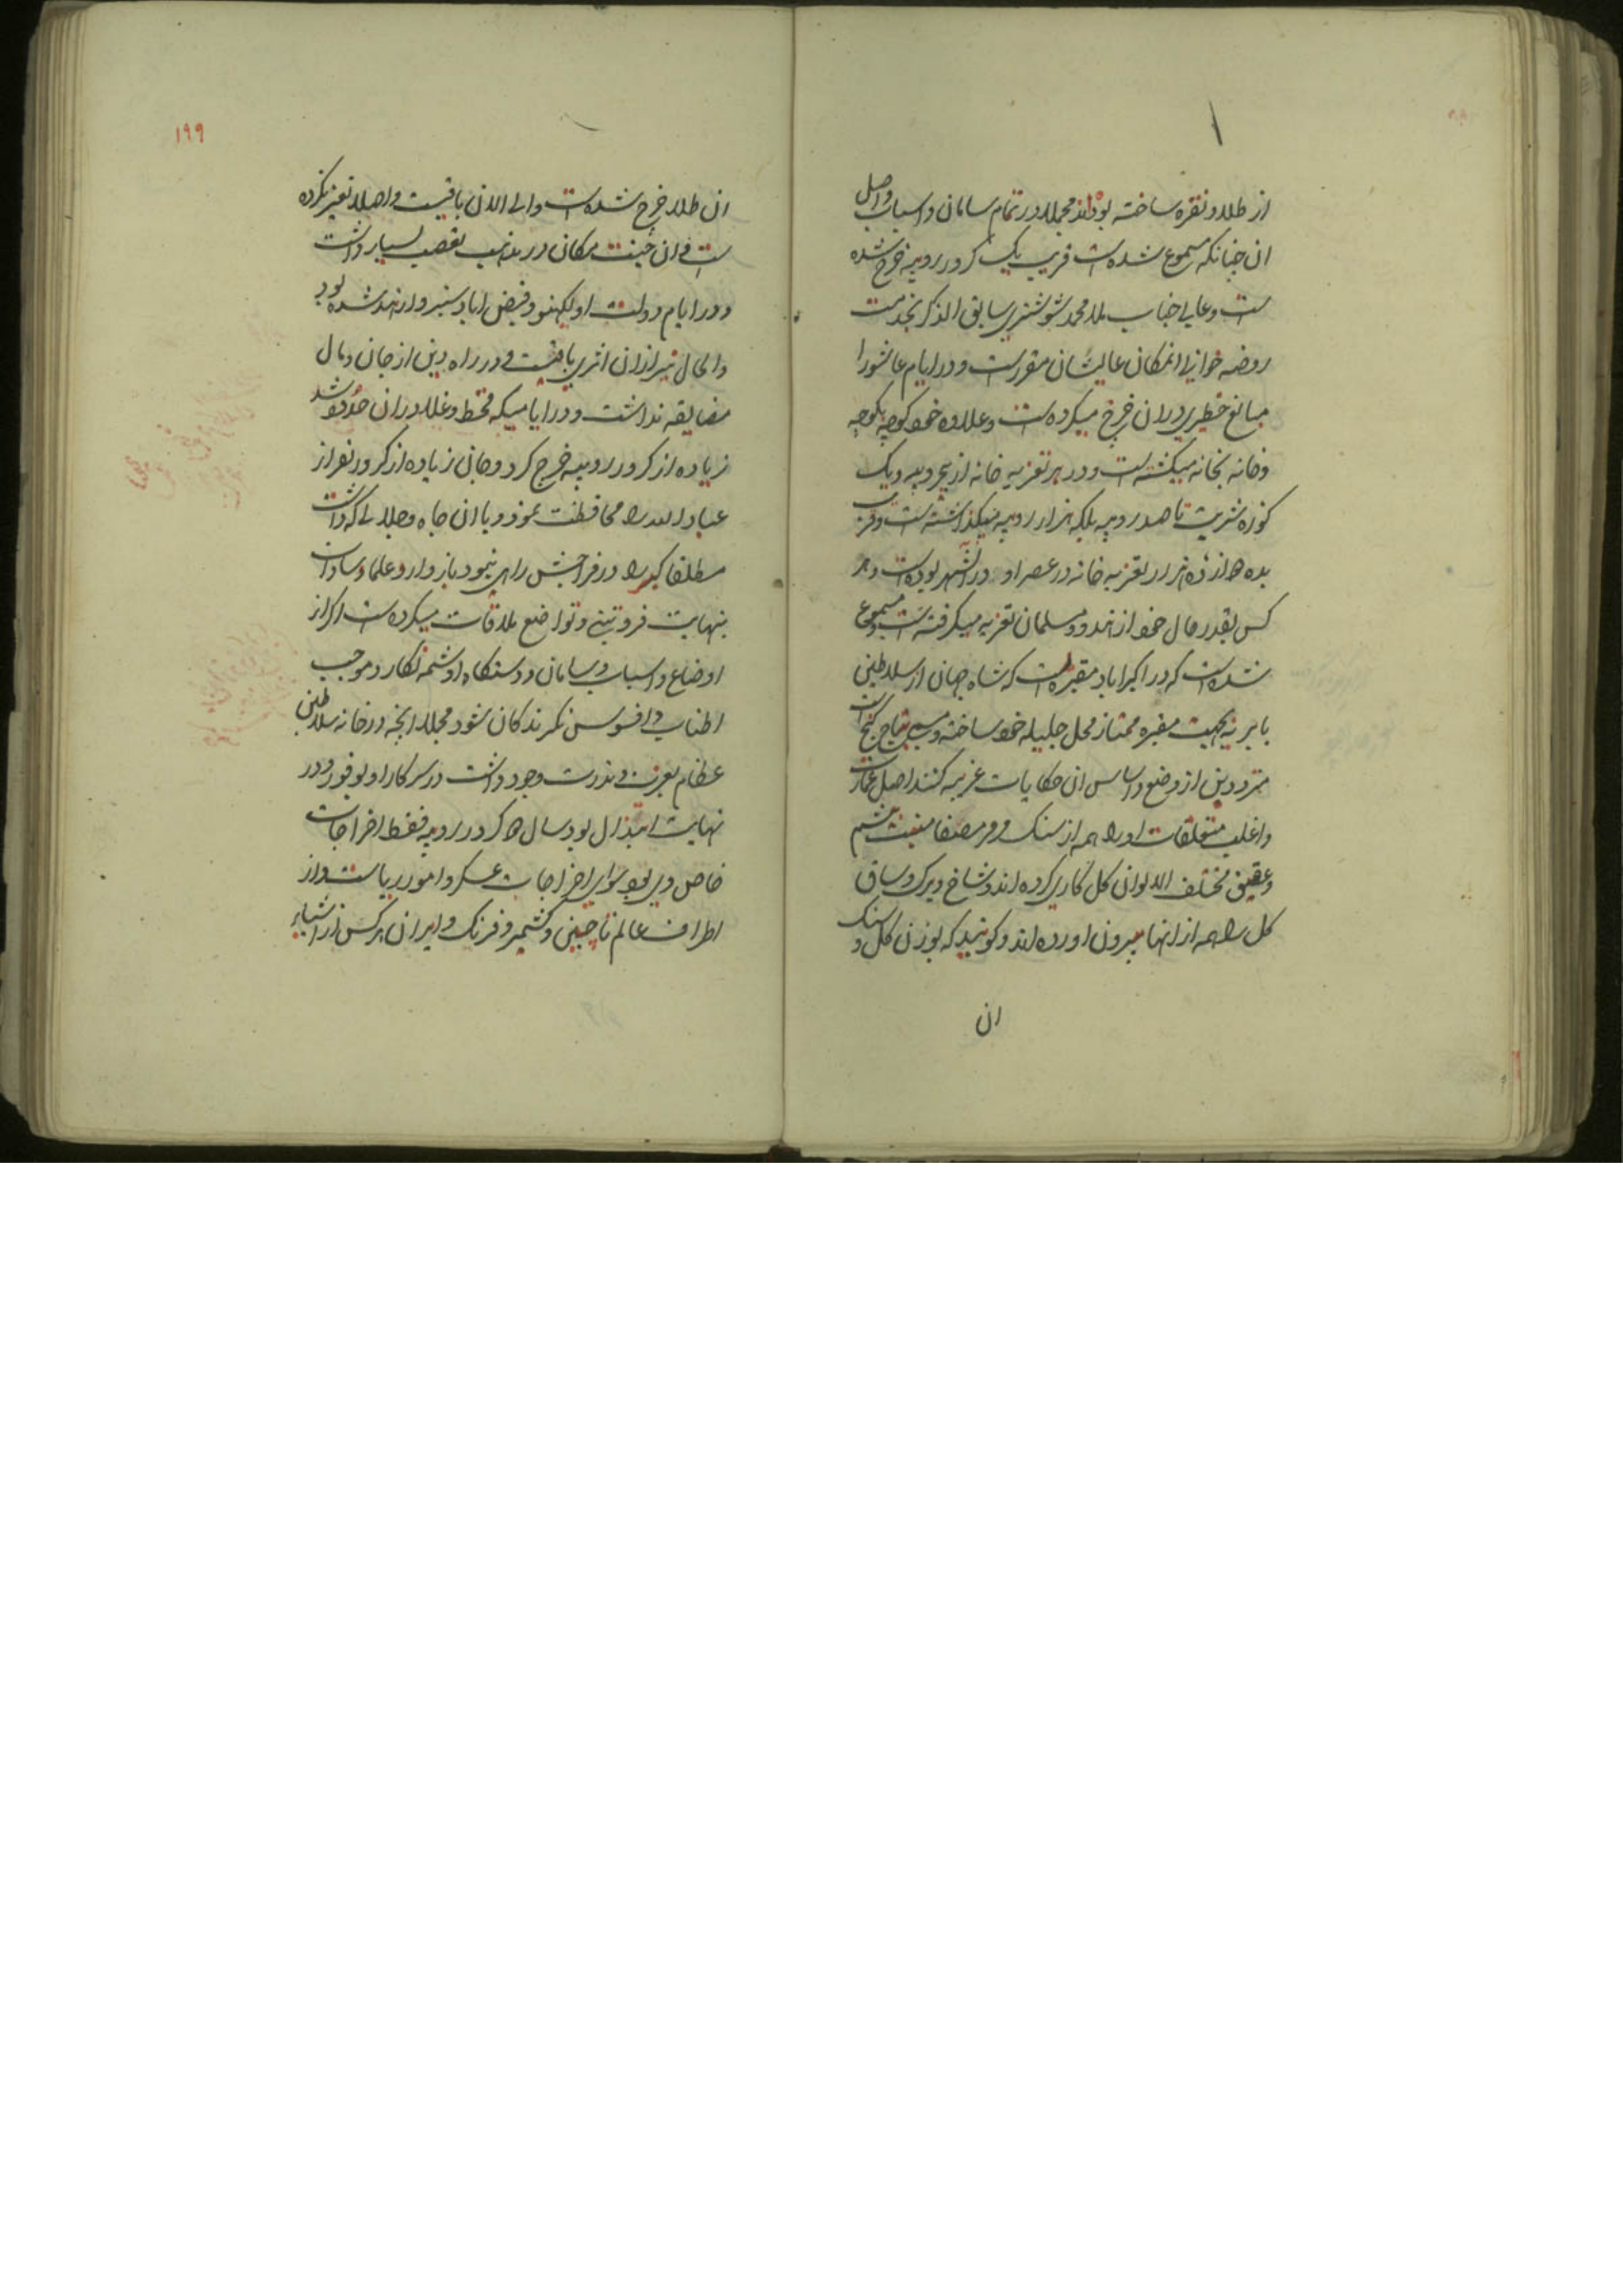 از طلا و نقره ساخته بوداند مجملا در تمام سامان و اسباب و اصل
ان چنانکه مسموع شده است قریب یک کرور روپیه خرج شده
است و عالی جناب ملا محمد شوشتری سابق الذکر بخدمت
روضه خوانی انمکان عالیشان مقررست و در ایام عاشورا
مبالغ خطیری دران خرج میکرده است و علاوه خود کوچه بکوچه
و خانه بخانه میکشته است و در هر تعزیه خانه از پنجروپیه و یک
کوزه شربت تا صد روپیه بلکه هزار روپیه میکذاشته است و قریب
بده هزار تعزیه خانه در عصر او در انشهر بوده است و هر
کس بقدر حال خود از هندو و مسلمان تعزیه میکرفته است و مسموع
شده است که در اکبراباد مقبره است که شاه جهان از سلاطین
بابریه بجهت مقبره ممتاز محل جلیله خود ساخته و مسمی بتاج کنج است
مترددین از وضع و اساس ان حکایات غریبه کنند اصل عمارت
و اغلب متعلقات او را همه از سنک مرمر مصفا
و عقیق مختلف الالوان کل کاری کرده اند و شاخ و برک و ساق
کل را همه از انها بیرون اورده اند و کویند که بوزن کل و سنک
ان
۱۹۹
ان طلا خرج شده است و الی الان باقیست و اصلا تغیر نکرده
است و ان جنت مکان در مذهب تعصب بسیار داشت
و در ایام دولت او لکهنو و فیض اباد سبزوار هند شده بود
و الحال نیز ازان اثری باقیست و در راه دین از جان و مال
مضایقه نداشت و در ایامیکه قحط و غلا دران حدود شد
زیاده از کرور روپیه خرج کرد و جان زیاده از کرور نفر از
عباد الله را محافظت نمود و با ان جاه و جلالی که داشت
مطلقا کبر را در مزاجش راهی نبود با زوار و علما و سادات
بنهایت فروتنی و تواضع ملاقات میکرده است اکر از
اوضاع و اسباب و سامان و دستکاه او شمه نکارد موجب
اطناب و افسوس نکرندکان شود مجملا انچه در خانه سلاطین
عظام بعزت و ندرت وجود داشت در سرکار او بوفور و در
نهایت ابتذال بود سال کرور روپیه فقط اخراجات
خاص وی بود سوای اخراجات عسکر و امور ریاست و از
اطراف عالم تا چین و کشمیر و فرنک و ایران هر کس از اشیای